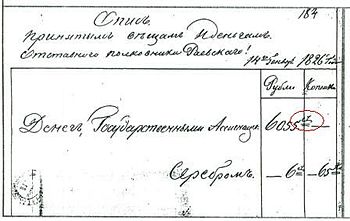 184
Опись
принятымъ вещамъ и деньгамъ
Отставнаго полковника Раевскаго!
14го Генваря 1826 года
Рубли Копѣйки
Денегъ, Государственными Ассигнац. 6055
Серебромъ. — 6 — 65